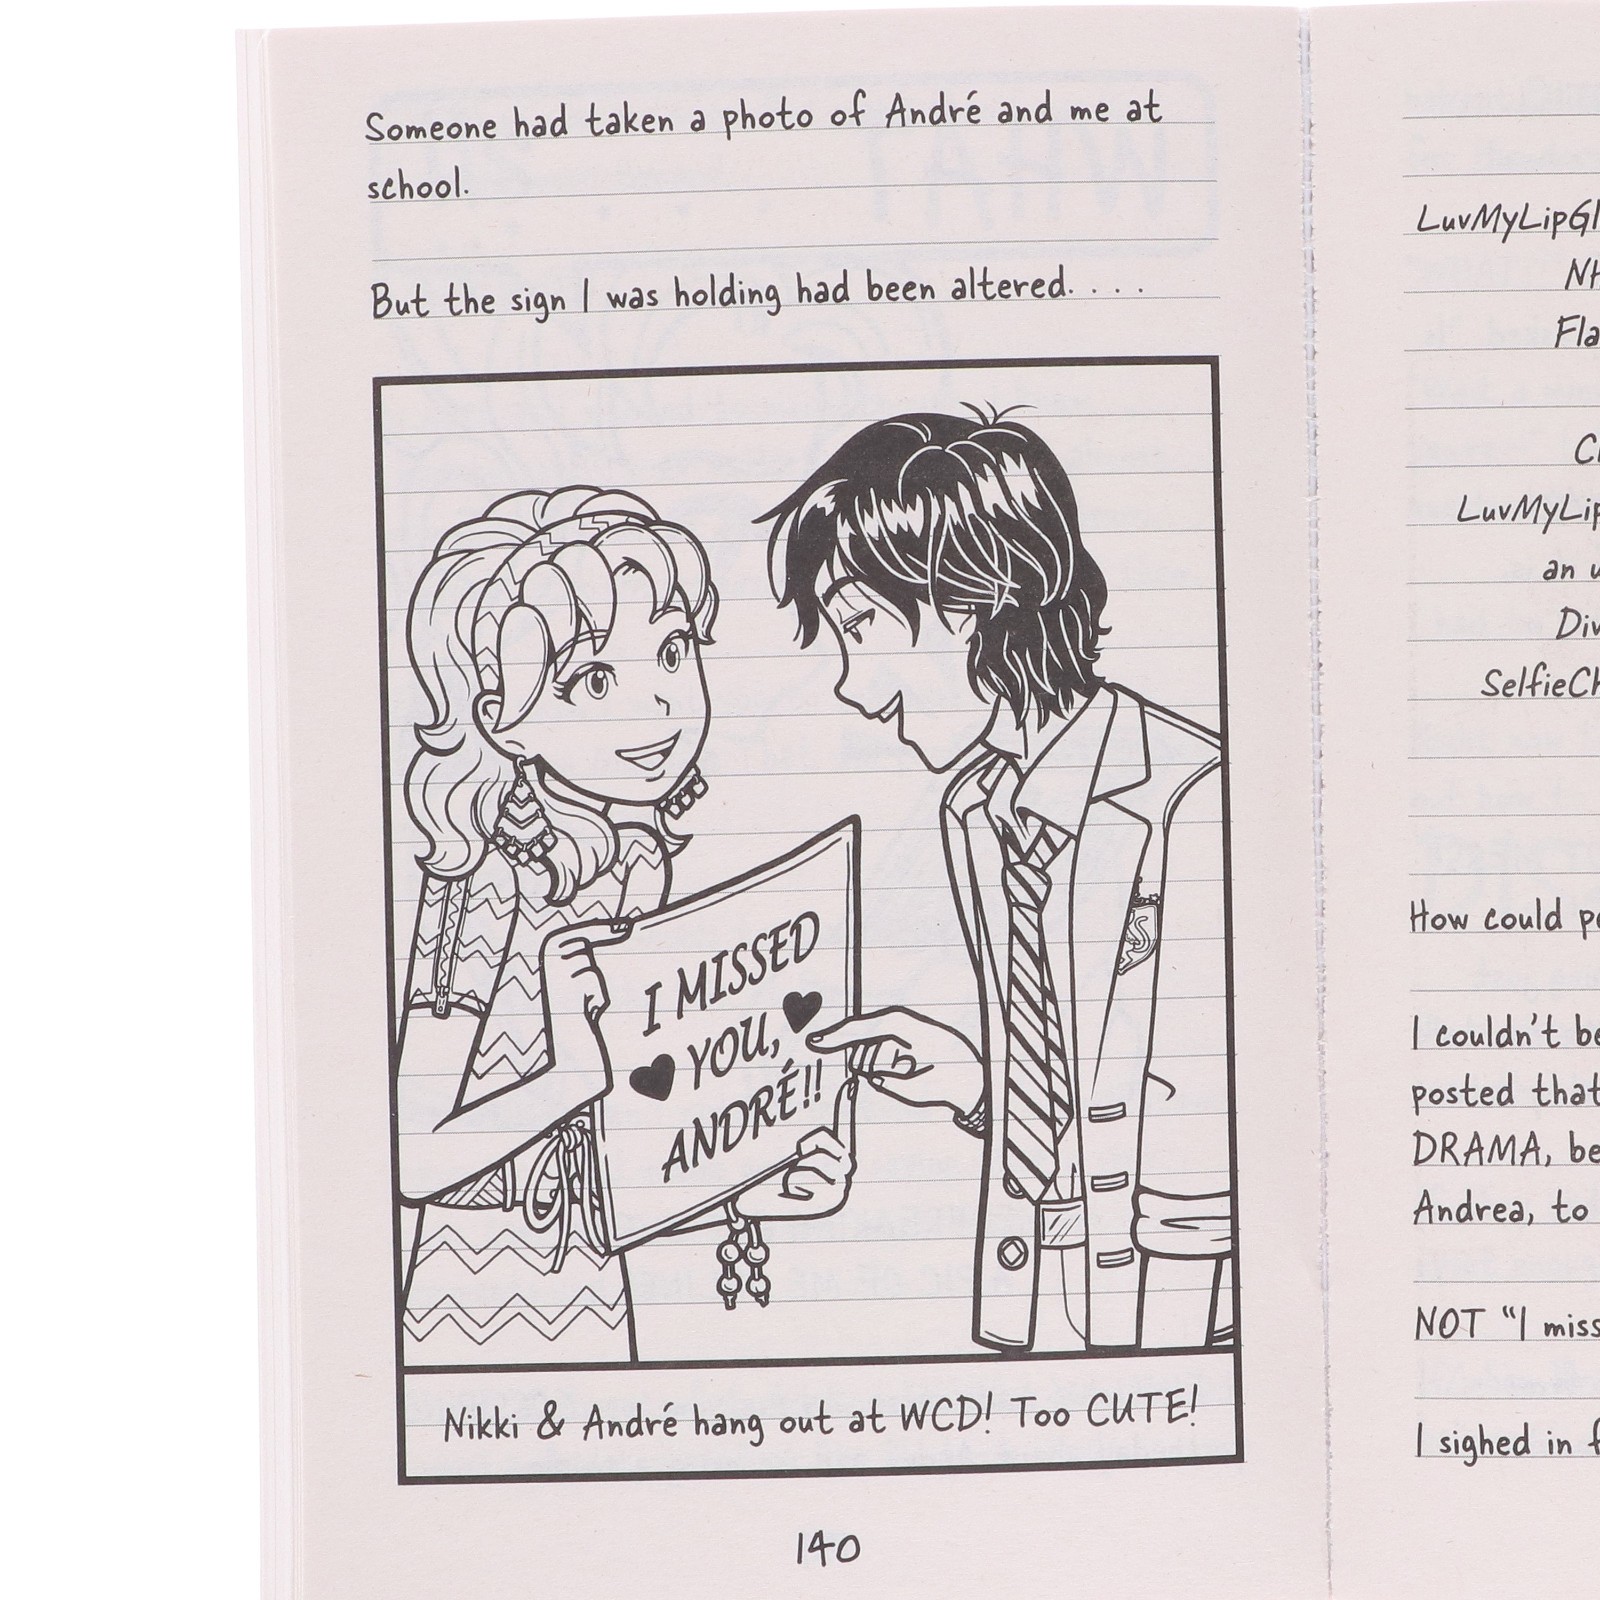 Someone had taken a photo of André and me at
school.
But the sign I was holding had been altered. . . .
I MISSED
YOU,
ANDRÉ!!
Nikki & André hang out at WCD! Too CUTE!
140
LuvMyLipGl
an
How could
I couldn't
posted that
DRAMA,
Andrea, to
NOT "I miss
I sighed in